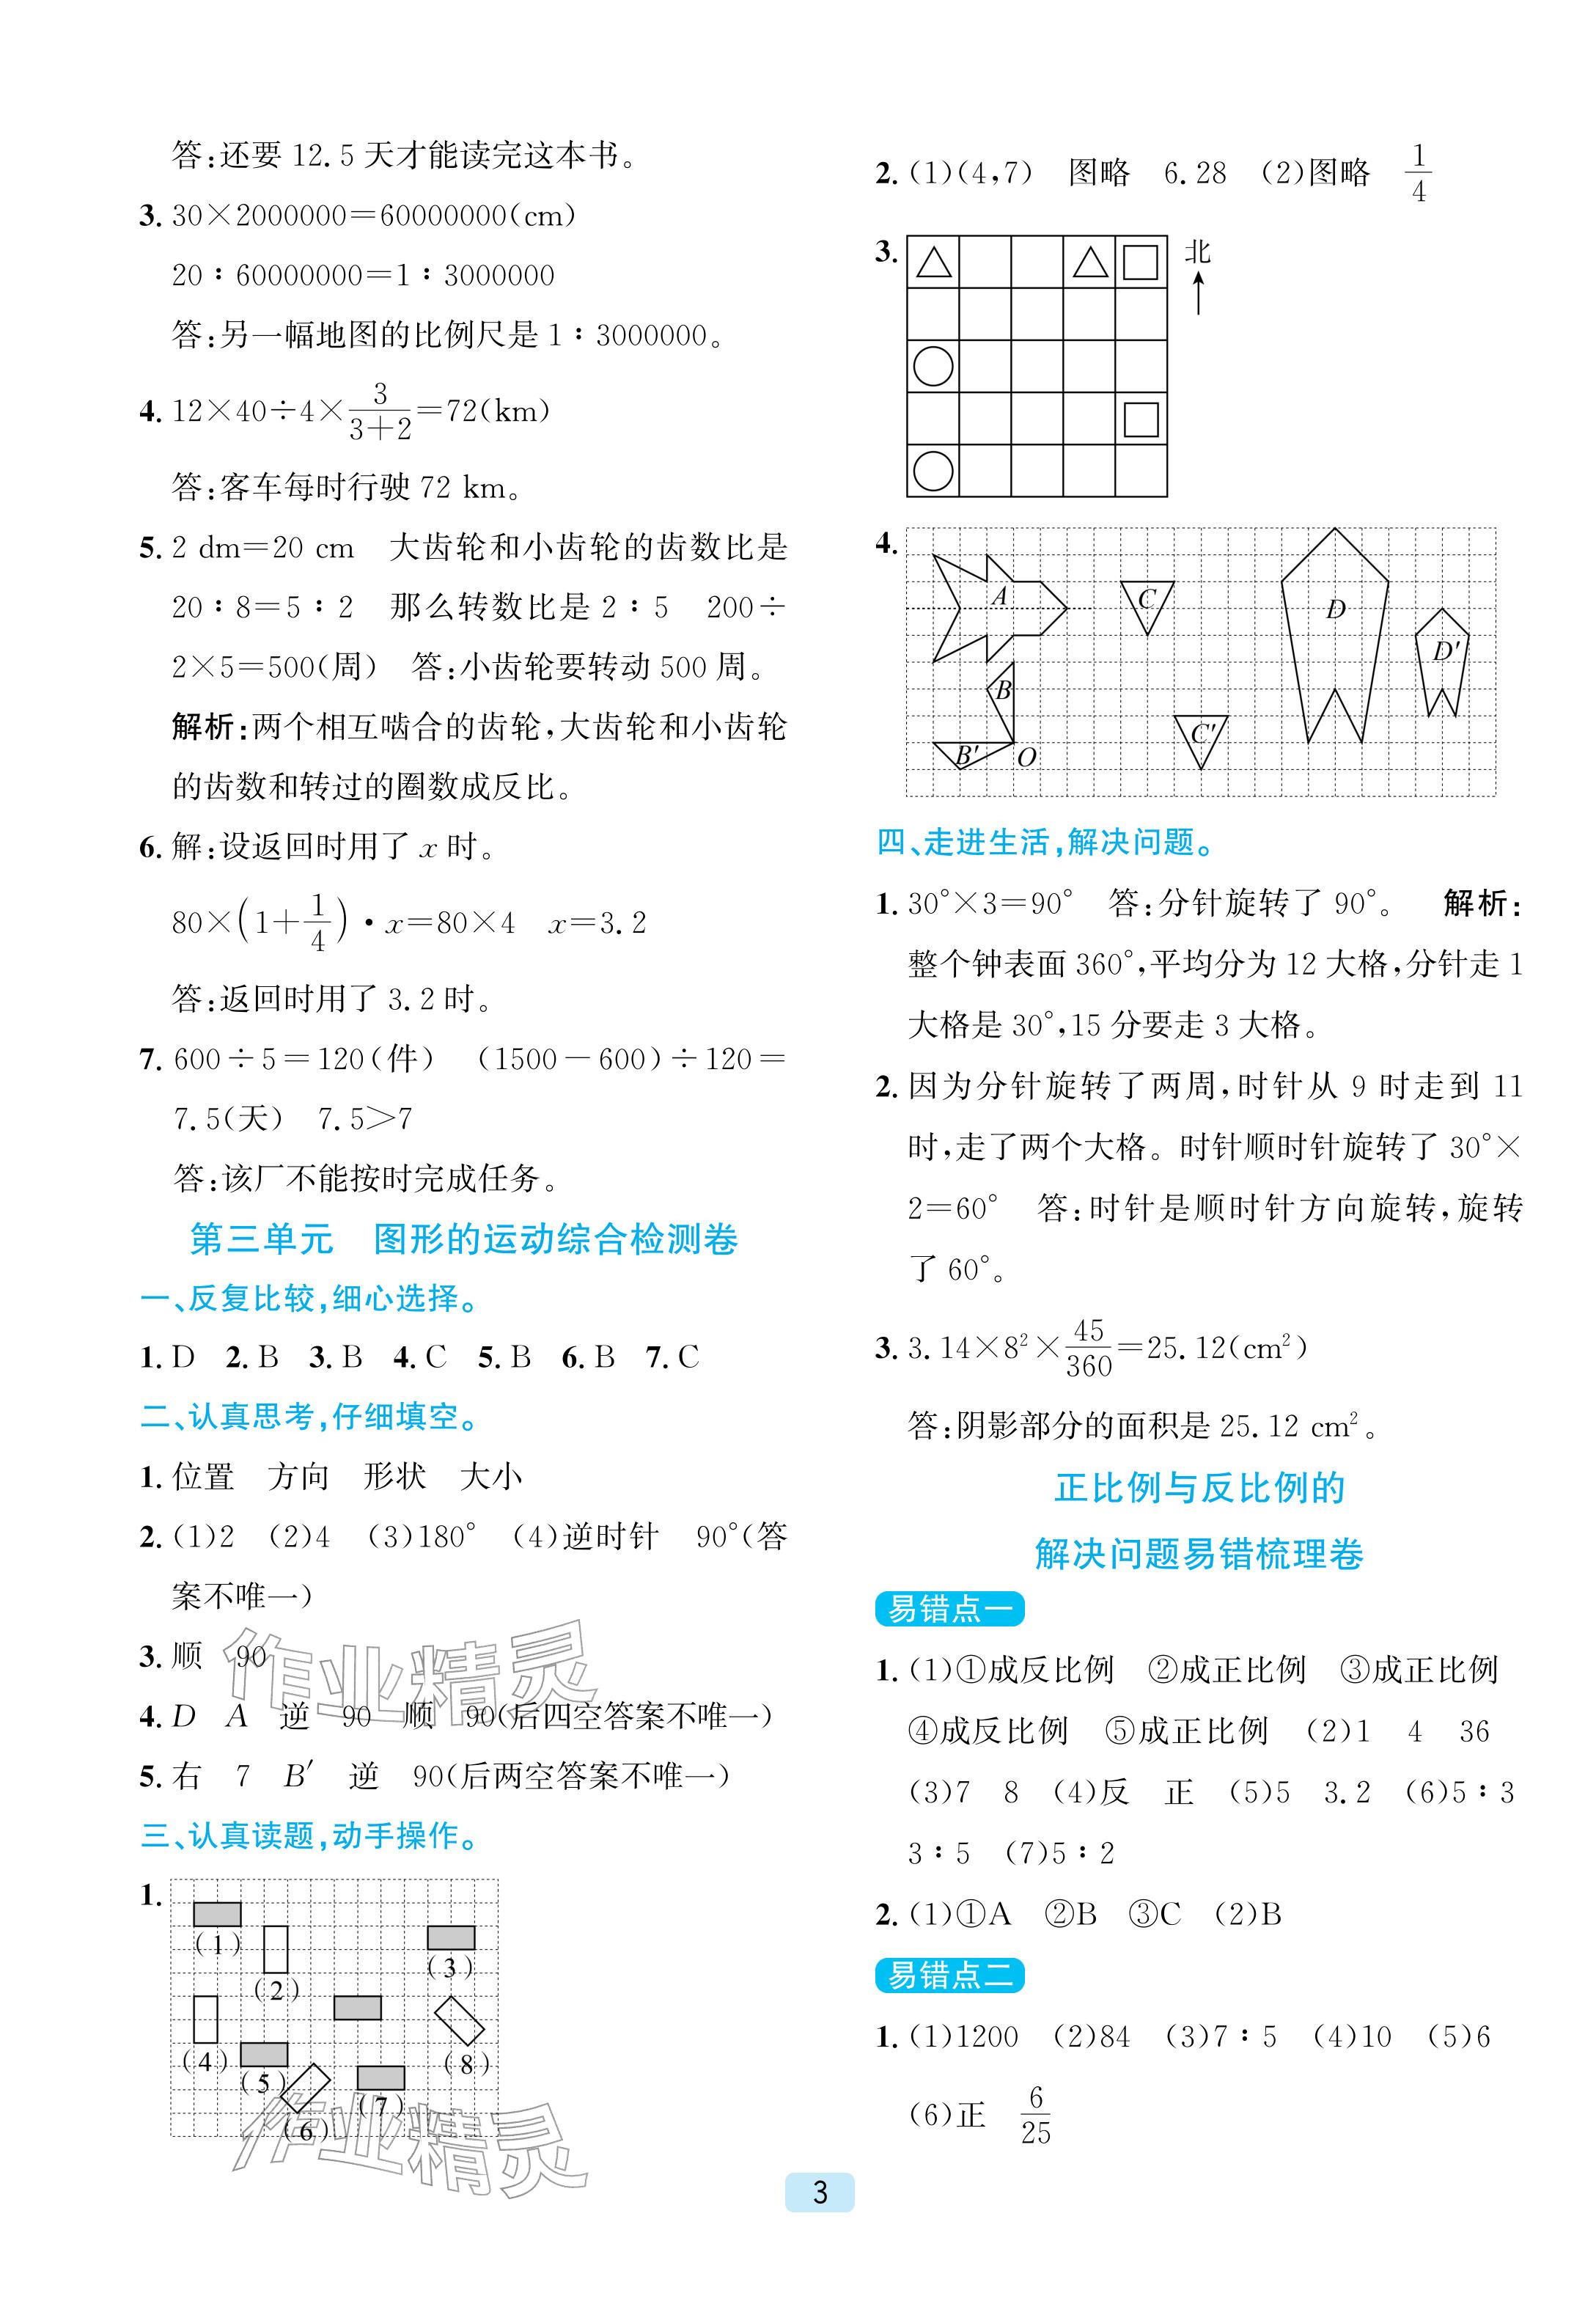 答:还要 12.5 天才能读完这本书。
3. 30×2000000=60000000(cm)
20∶60000000=1∶3000000
答:另一幅地图的比例尺是 1∶3000000。
4. 12×40÷4×3/(3+2)=72(km)
答:客车每时行驶 72 km。
5. 2 dm=20 cm　大齿轮和小齿轮的齿数比是
20∶8=5∶2　那么转数比是 2∶5　200÷
2×5=500(周)　答:小齿轮要转动 500 周。
解析:两个相互啮合的齿轮,大齿轮和小齿轮
的齿数和转过的圈数成反比。
6. 解:设返回时用了 x 时。
80×(1+1/4)·x=80×4　x=3.2
答:返回时用了 3.2 时。
7. 600÷5=120(件)　(1500-600)÷120=
7.5(天)　7.5>7
答:该厂不能按时完成任务。
第三单元　图形的运动综合检测卷
一、反复比较,细心选择。
1. D　2. B　3. B　4. C　5. B　6. B　7. C
二、认真思考,仔细填空。
1. 位置　方向　形状　大小
2. (1)2　(2)4　(3)180°　(4)逆时针　90°(答
案不唯一)
3. 顺　90
4. D　A　逆　90　顺　90(后四空答案不唯一)
5. 右　7　B′　逆　90(后两空答案不唯一)
三、认真读题,动手操作。
1.
(1)
(2)
(3)
(4)
(5)
(6)
(7)
(8)
作业精灵
作业精灵
2. (1)(4,7)　图略　6.28　(2)图略　1/4
3.
北
4.
A
B
B′
O
C
C′
D
D′
四、走进生活,解决问题。
1. 30°×3=90°　答:分针旋转了 90°。　解析:
整个钟表面 360°,平均分为 12 大格,分针走 1
大格是 30°,15 分要走 3 大格。
2. 因为分针旋转了两周,时针从 9 时走到 11
时,走了两个大格。时针顺时针旋转了 30°×
2=60°　答:时针是顺时针方向旋转,旋转
了 60°。
3. 3.14×8²×45/360=25.12(cm²)
答:阴影部分的面积是 25.12 cm²。
正比例与反比例的
解决问题易错梳理卷
易错点一
1. (1)①成反比例　②成正比例　③成正比例
④成反比例　⑤成正比例　(2)1　4　36
(3)7　8　(4)反　正　(5)5　3.2　(6)5∶3
3∶5　(7)5∶2
2. (1)①A　②B　③C　(2)B
易错点二
1. (1)1200　(2)84　(3)7∶5　(4)10　(5)6
(6)正　6/25
3